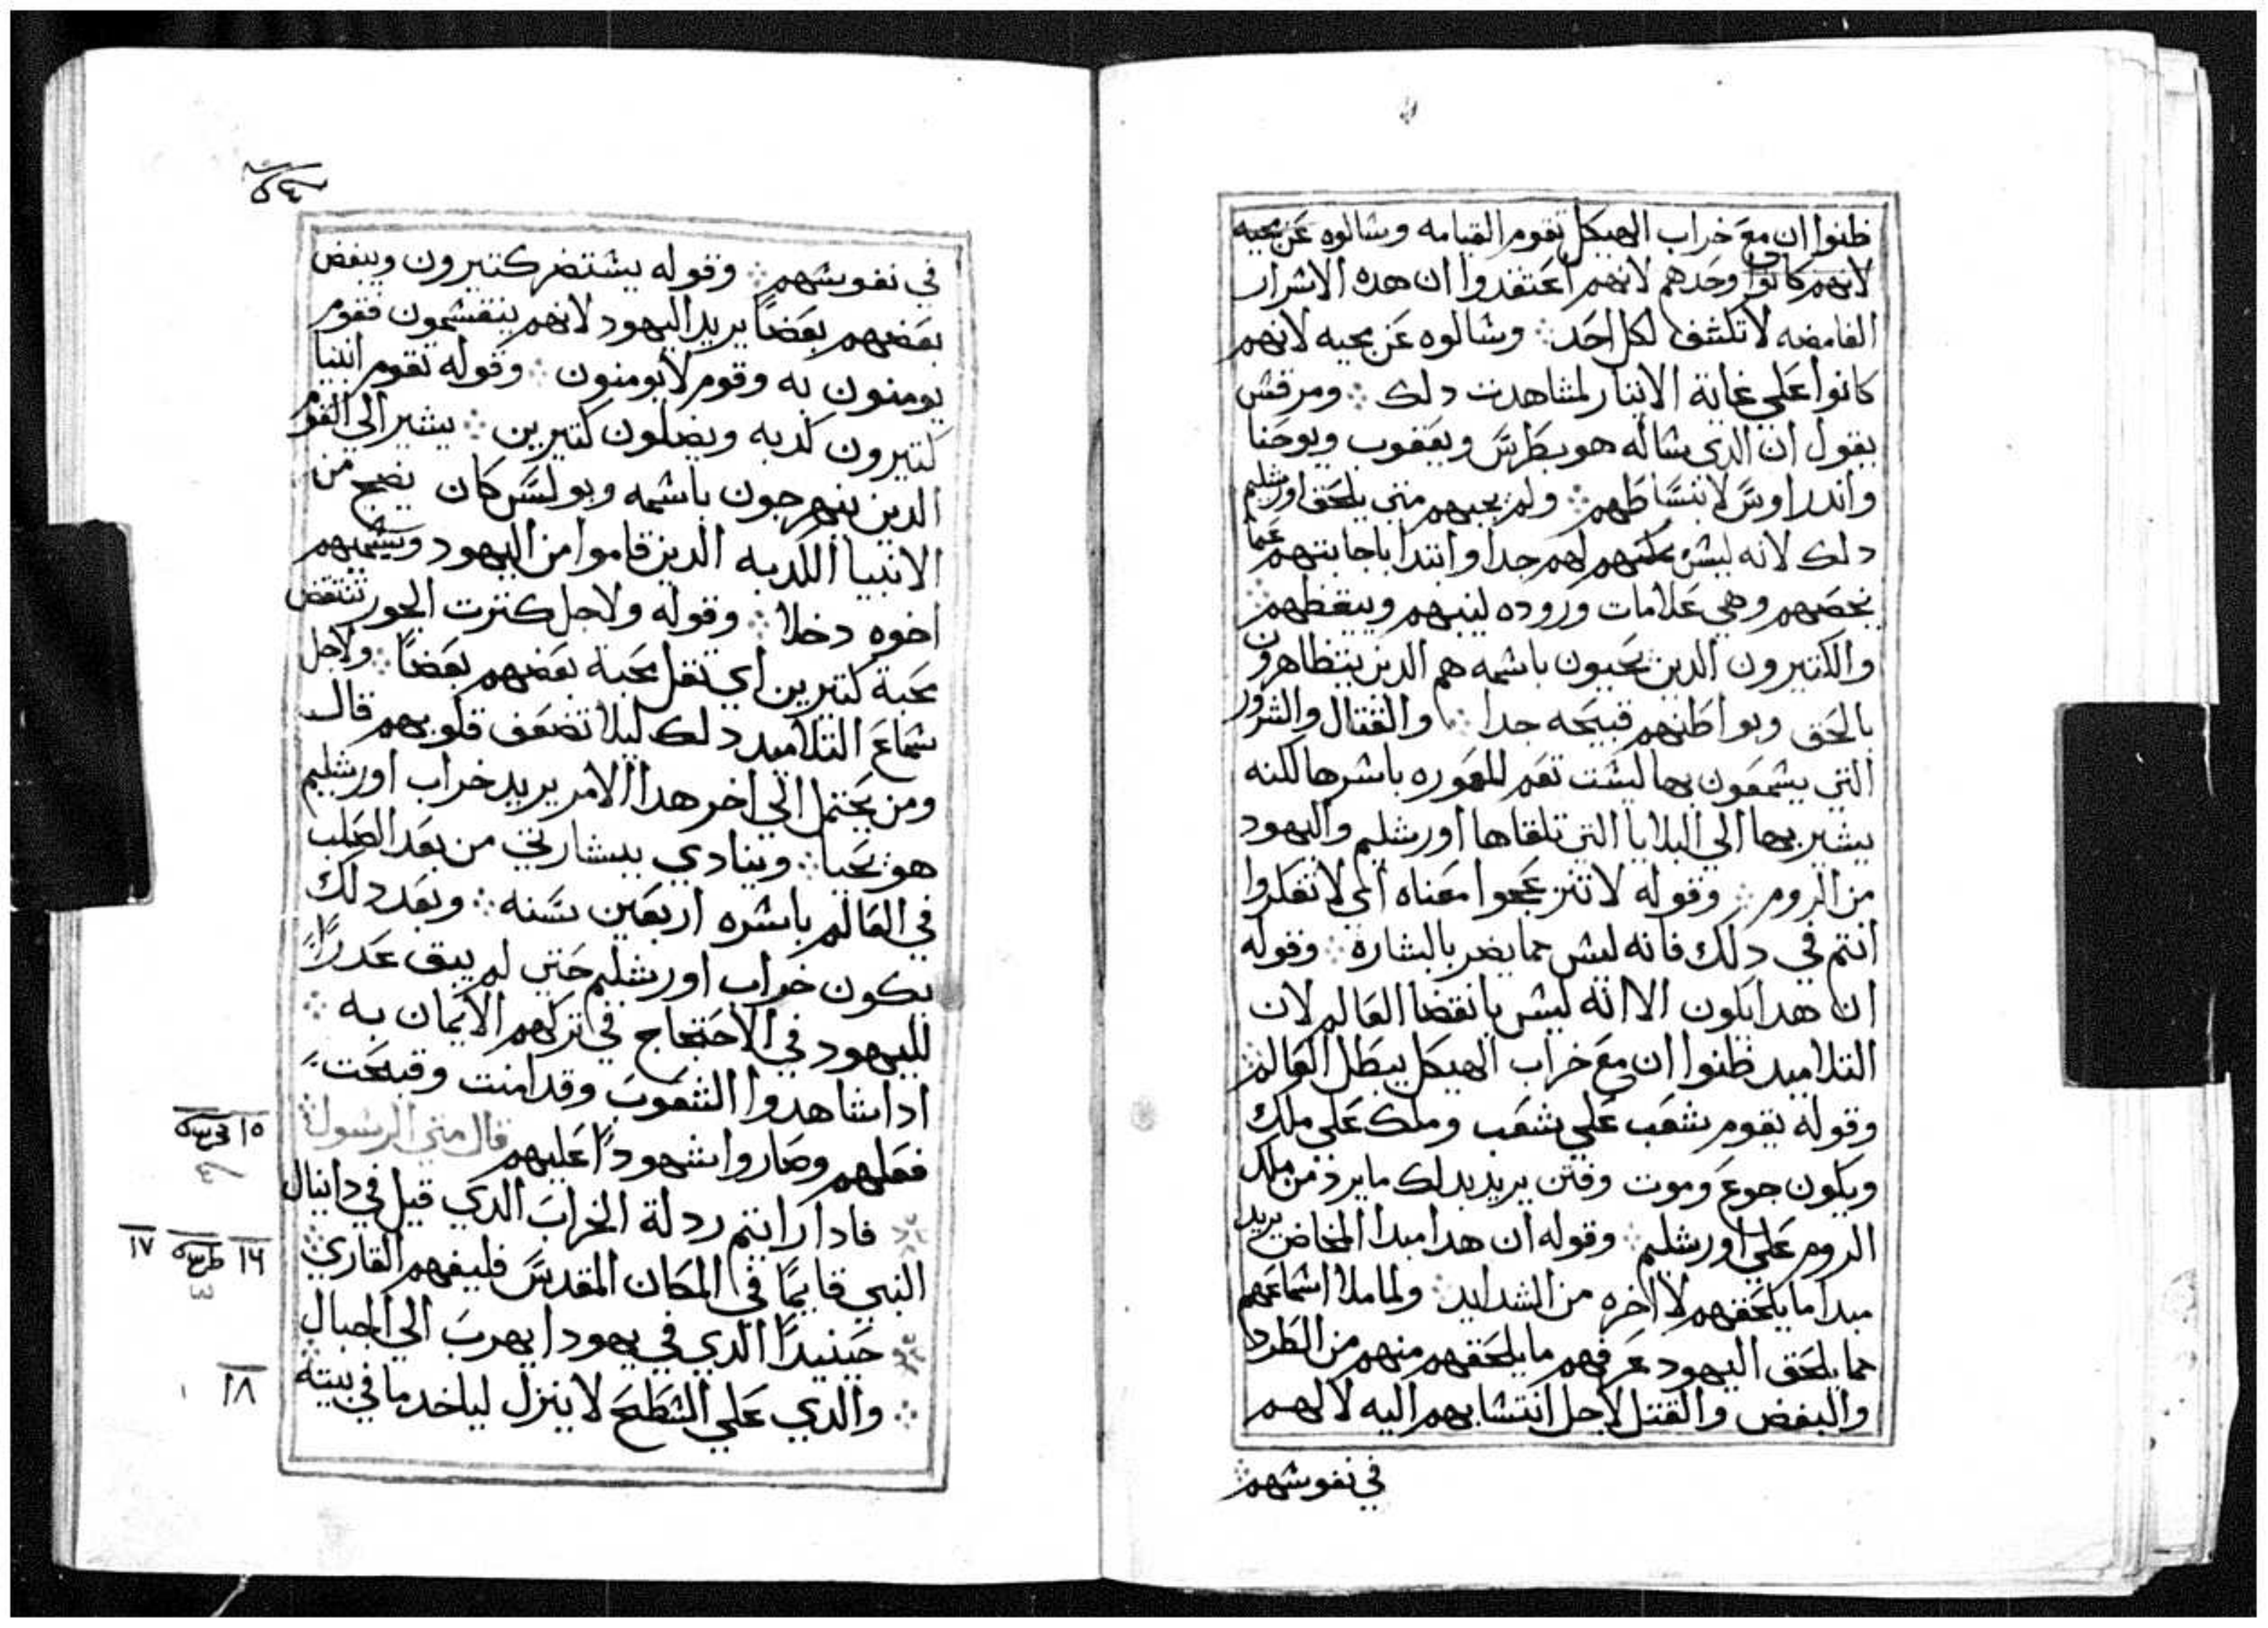 ظنوا ان مع خراب الهيكل تقوم القيامه وسالوه عن مجيه
لانهم كانوا وحدهم لانهم اعتقدوا ان هده الاسرار
الغامضه لا تكشف لكل احد وسالوه عن مجيه لانهم
كانوا علي غاية الايثار لمشاهدت دلك ومرقس
يقول ان الدي ساله هو بطرس ويعقوب ويوحنا
واندراوس لانبساطهم ولم يجبهم متي يلحق اورشليم
دلك لانه ليس لهم جدا وابتدا باجابتهم عما
يخصهم وهي علامات وروده لينبهم ويبقظهم
والكتيرون الدين يحيون باسمه هم الدين يتظاهرون
بالحق وبواطنهم قبيحه جدا والقتال والشرور
التي يسمعون بها ليست تعم المعموره باسرها لكنه
يشير بها الي البلايا التي تلقاها اورشليم واليهود
من الروم وقوله لا تنزعجوا معناه اي لا تفكروا
انتم في دلك فانه ليس مما يضر بالبشاره وقوله
ان هدا يكون الا انه ليس بانقضا العالم لان
التلاميد ظنوا ان مع خراب الهيكل يبطل العالم
وقوله يقوم شعب علي شعب وملك علي ملك
ويكون جوع وموت وفتن يريد بدلك ما يرد من ملك
الروم علي اورشليم وقوله ان هدا مبدا المخاض يريد
مبدا ما يلحقهم لا اخره من الشدايد ولما ملا اسماعهم
مما يلحق اليهود عرفهم ما يلحقهم منهم من الطرد
والبغض والقتل لاجل انتسابهم اليه لا لهم
في نفوسهم
٥٤
في نفوسهم وقوله يستضر كتيرون ويبغض
بعضهم بعضاً يريد اليهود لانهم ينقسمون فقوم
يومنون به وقوم لا يومنون وقوله تقوم انبيا
كتيرون كدبه ويضلون كتيرين يشير الي القوم
الدين ينهرجون باسمه وبولس كان يضج من
الانبيا الكدبه الدين قاموا من اليهود ويسميهم
اخوه دخلا وقوله ولاجل كترت الجور تنتقض
محبة كتيرين اي تقل محبة بعضهم بعضاً ولاجل
سماع التلاميد دلك ليلا تضعف قلوبهم قال
ومن يحتمل الي اخر هدا الامر يريد خراب اورشليم
هو يحيا وينادي ببشارتي من بعد الصلب
في العالم باسره اربعين سنه وبعد دلك
يكون خراب اورشليم حتي لم يبق عدراً
لليهود في الاحتجاج في تركهم الايمان به
ادا شاهدوا الشعوب وقد امنت وقبحت
فعلهم وصاروا شهوداً عليهم قال متي الرسول
١٥
فادا رايتم ردلة الخراب الدي قيل في دانيال
النبي قايماً في المكان المقدس فليفهم القاري
١٦ ١٧
حينيداً الدي في يهودا يهرب الي الجبال
١٨
والدي علي السطح لا ينزل لياخد ما في بيته